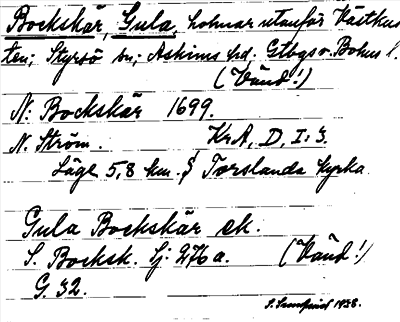 Bockskär, Gula, holmar utanför Västkus
ten; Styrsö sn; Askims hd. Gtbgs o. Bohus l.
(Vänd!)
N. Bockskär 1699.
N. Ström. KrA, D, I: 3.
Läge 5,8 km. S Torslanda kyrka
Gula Bockskär ek.
S. Bocksk. Sj: 276 a. (Vänd!)
G. 32.
1938.